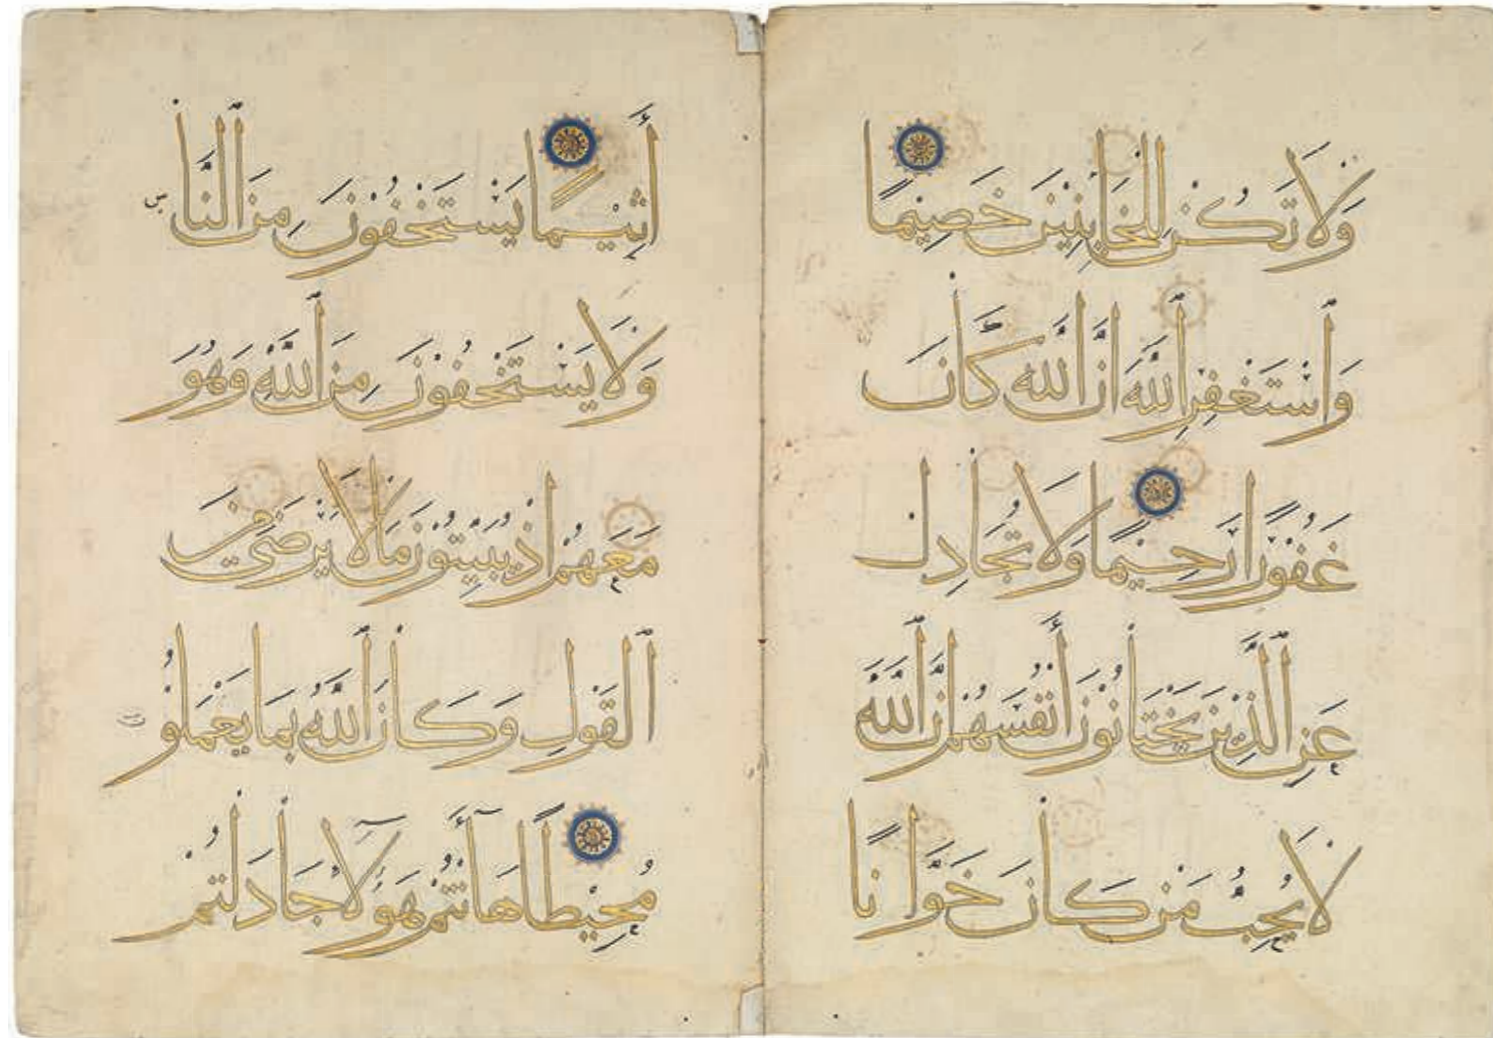 وَلَا تَكُنْ لِلْخَائِنِينَ خَصِيمًا
وَاسْتَغْفِرِ اللَّهَ إِنَّ اللَّهَ كَانَ
غَفُورًا رَحِيمًا وَلَا تُجَادِلْ
عَنِ الَّذِينَ يَخْتَانُونَ أَنْفُسَهُمْ إِنَّ اللَّهَ
لَا يُحِبُّ مَنْ كَانَ خَوَّانًا
أَثِيمًا يَسْتَخْفُونَ مِنَ النَّاس
وَلَا يَسْتَخْفُونَ مِنَ اللَّهِ وَهُوَ
مَعَهُمْ إِذْ يُبَيِّتُونَ مَا لَا يَرْضَى مِنَ
الْقَوْلِ وَكَانَ اللَّهُ بِمَا يَعْمَلُون
مُحِيطًا هَا أَنْتُمْ هَؤُلَاءِ جَادَلْتُمْ